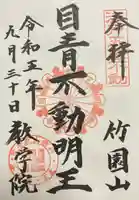 奉拝
竹園山
目青不動明王
教学院
令和五年
九月三十日